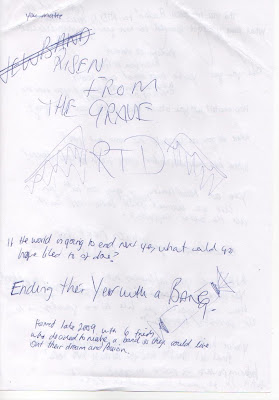 you matter
NEW BAND
RISEN
FROM
THE GRAVE
RTD
If the world is going to end next year, what would you
hope liked to of done?
Ending the Year with a BANG.
Formed late 2009 with 6 friends
who decided to make a band so they could live
out their dream and passion.